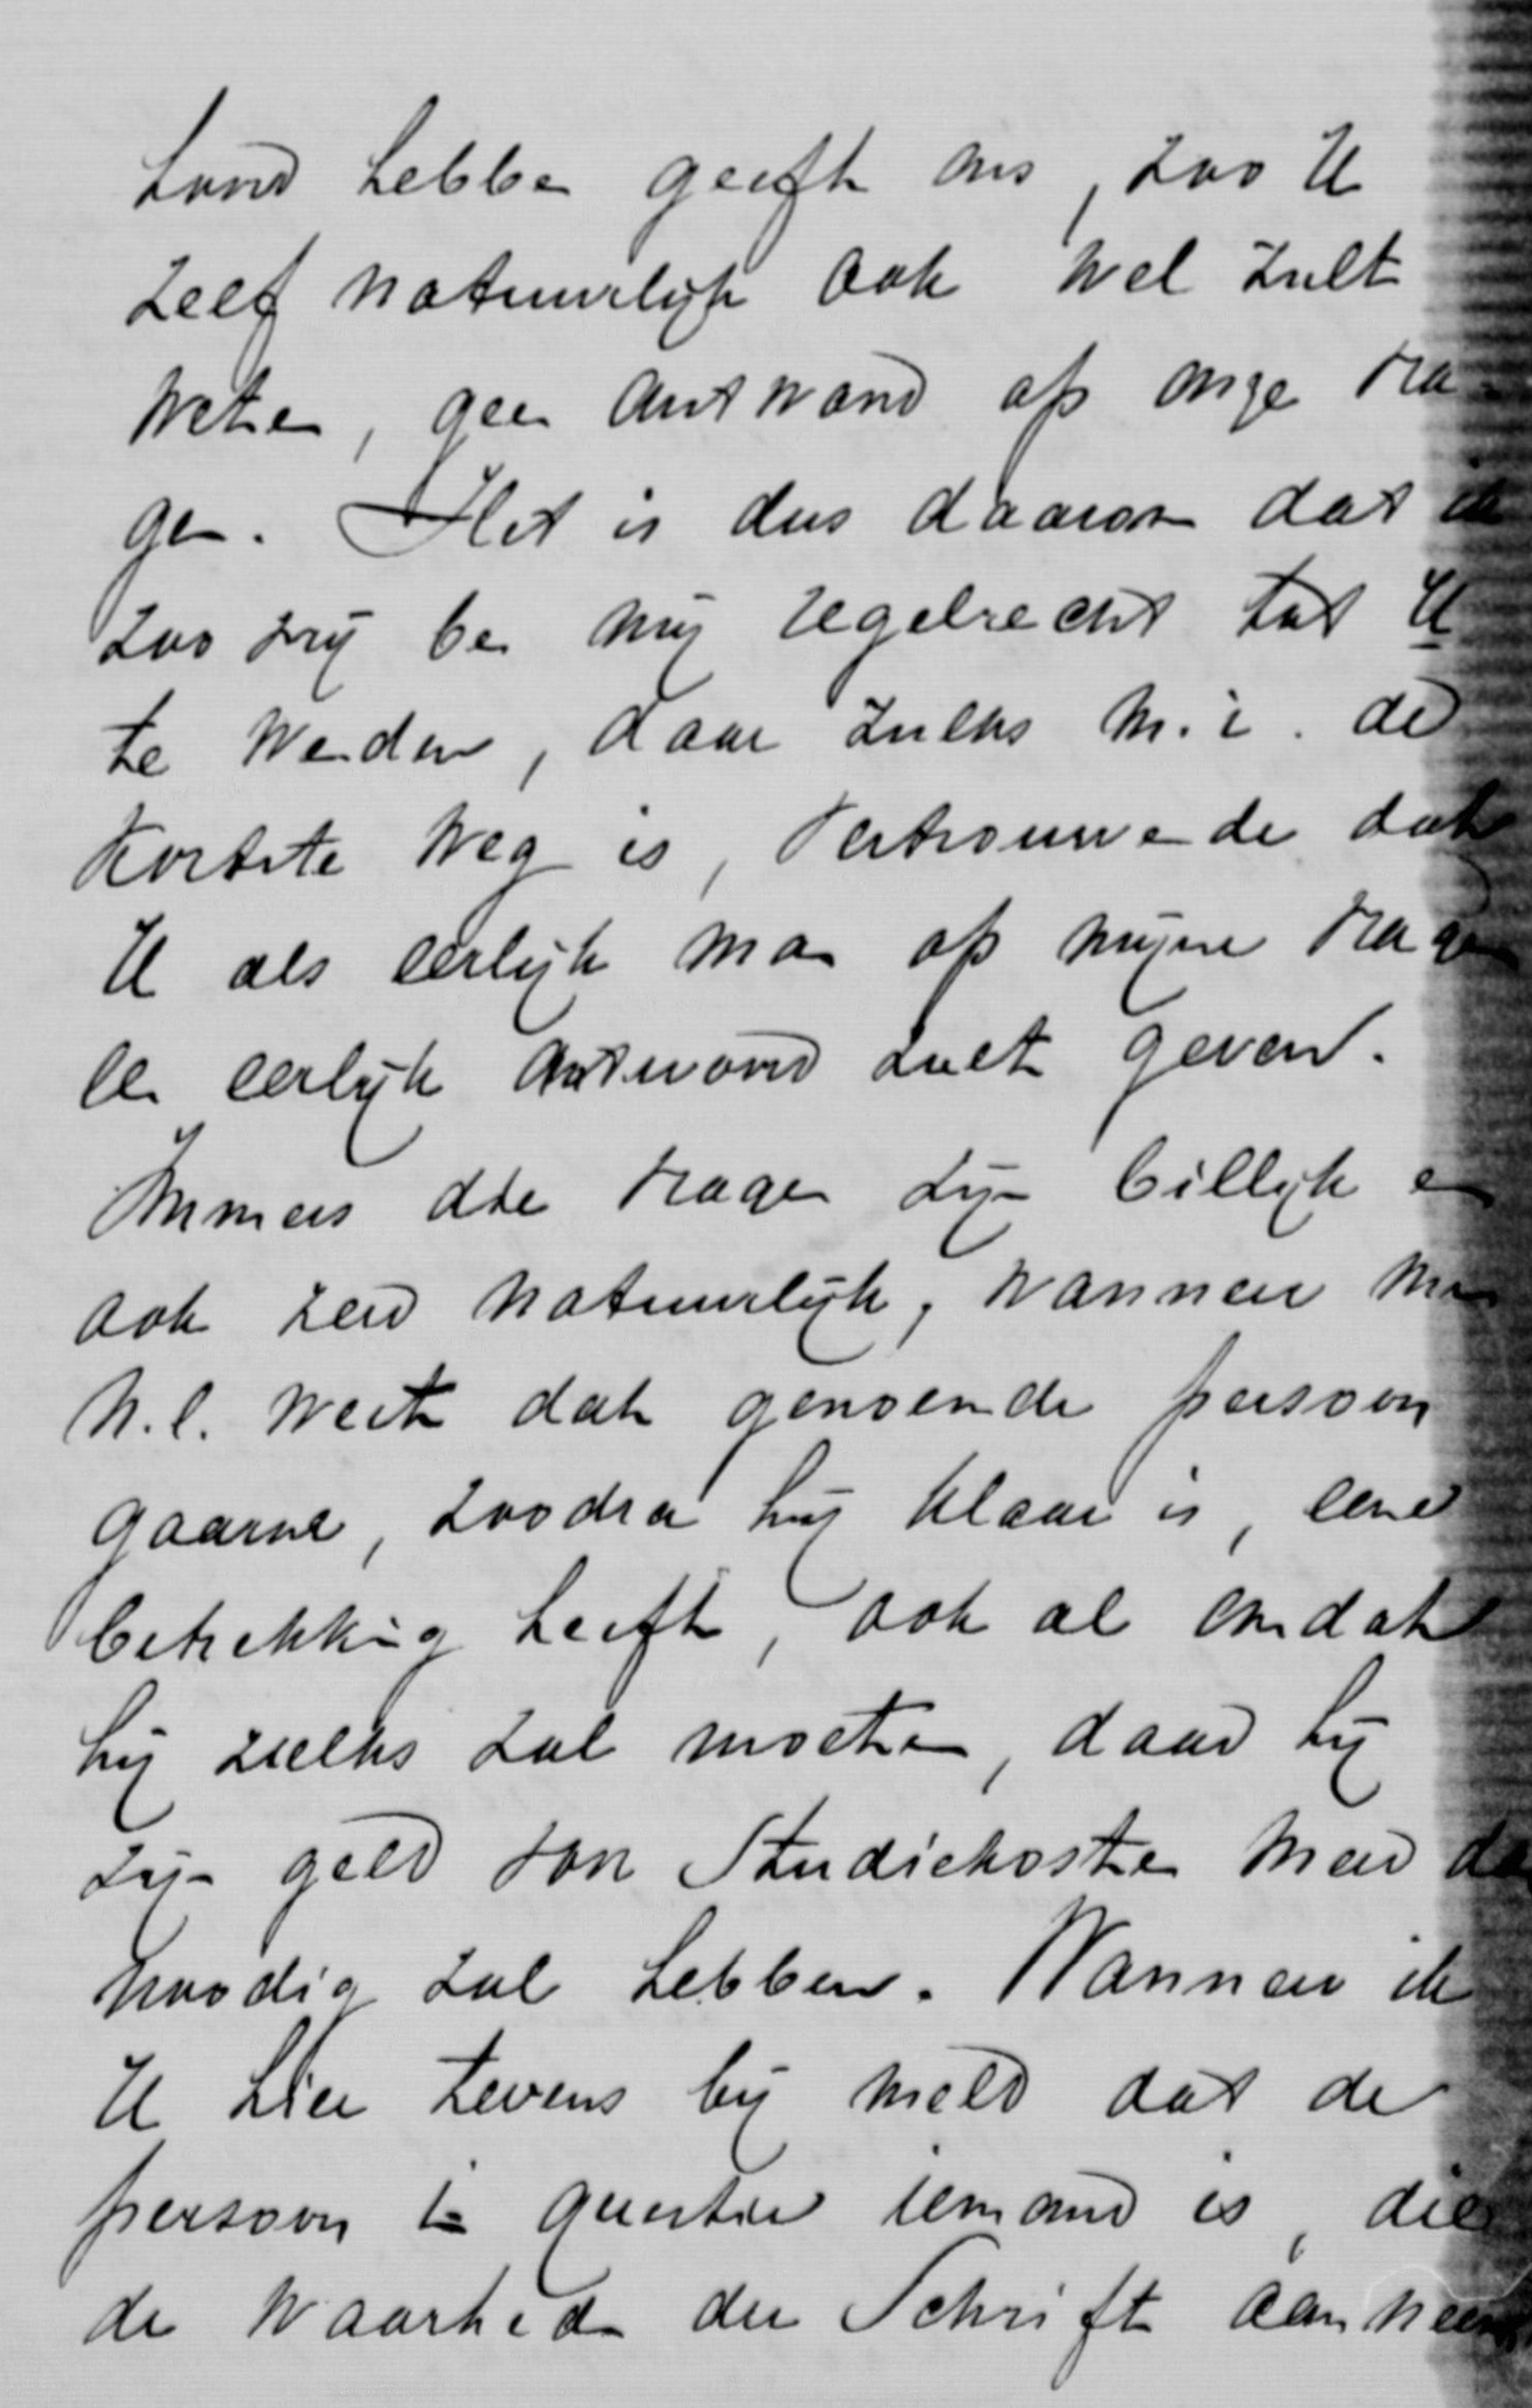 hand hebben geeft ons, zoo U
zelf natuurlijk ook wel zult
weten, geen antwoord op onze vra-
gen. Het is dus daarom dat ik
zoo vrij ben mij regelrecht tot U
te wenden, daar zulks m.i. de
kortste weg is, vertrouwende dat
U als eerlijk man op mijne vragen
een eerlijk antwoord zult geven.
Immers die vragen zijn billijk en
ook zeer natuurlijk, wanneer men
n.l. weet dat genoemde persoon
gaarne, zoodra hij klaar is, eene
betrekking heeft, ook al omdat
hij zulks zal moeten, daar hij
zijn geld van Studiekosten meer dan
noodig zal hebben. Wanneer ik
U hier tevens bij meld dat de
persoon in questie iemand is, die
de waarheid der Schrift aanneemt